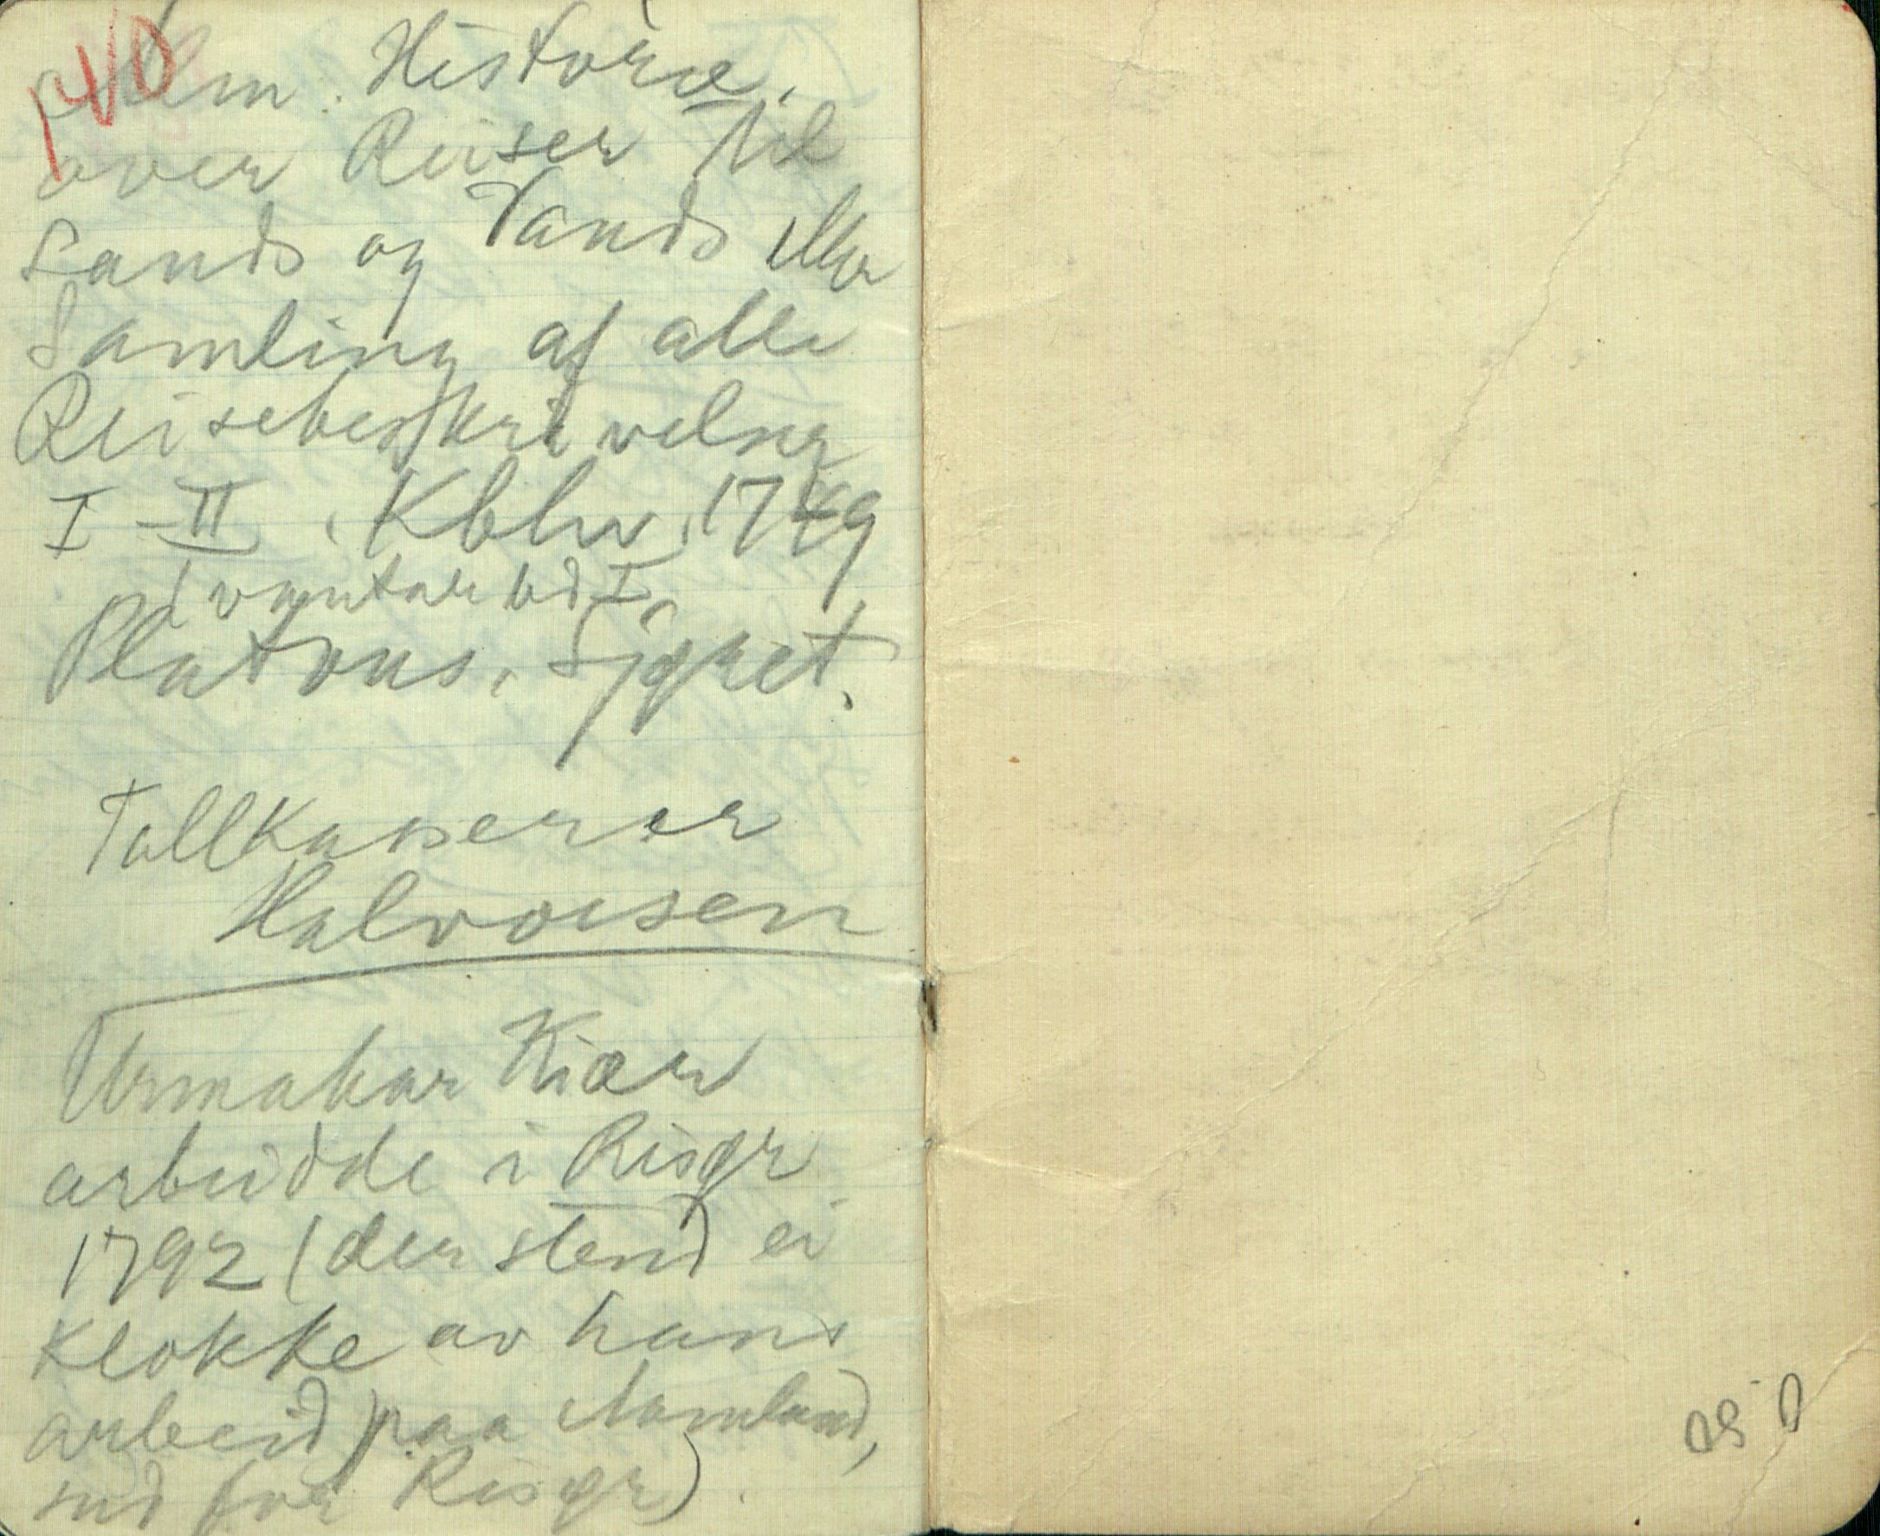 140
Alm. Historie
over Reiser til
Lands og Vands eller
Samling af alle
Reisebeskrivelser
I-II, Kbhv, 1749
(vantar bd I)
Platous, Sjøret.
Tollkasserer
Halvorsen
Urmakar Kiær
arbeidde i Risør
1792 (der stend ei
Klokke av hans
arbeid) paa
sud for Risør)
0.50